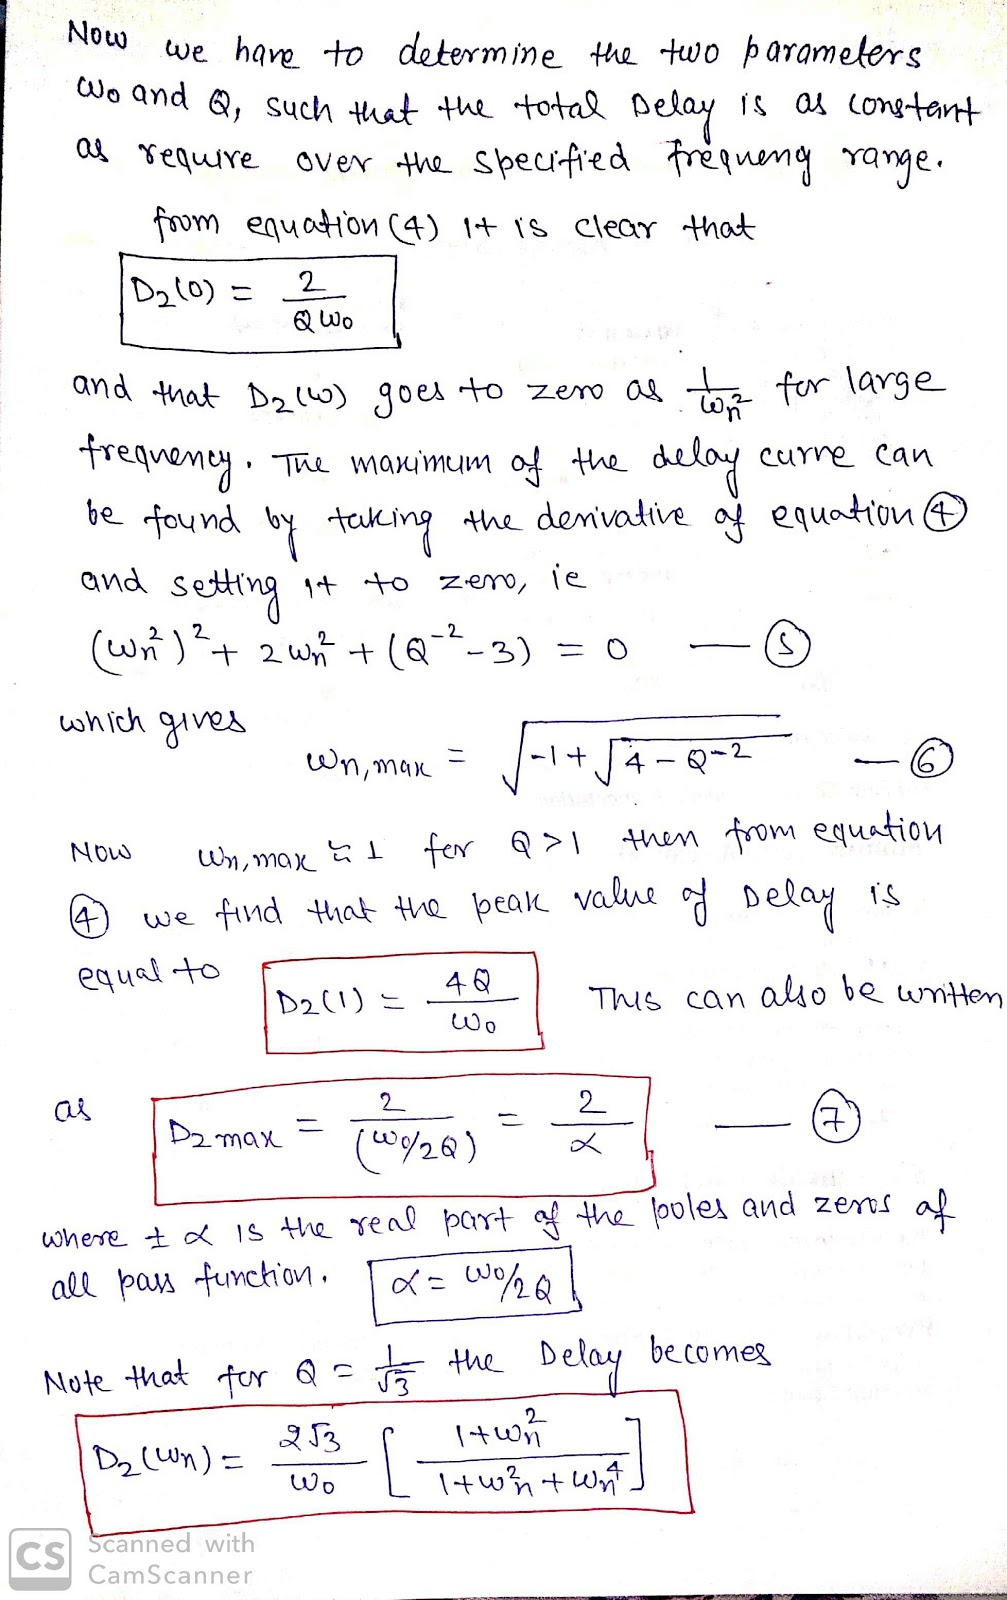 Now we have to determine the two parameters
ω₀ and Q, such that the total Delay is as constant
as require over the specified frequency range.
from equation (4) it is clear that
D₂(0) = 2/(Qω₀)
and that D₂(ω) goes to zero as 1/ωₙ² for large
frequency. The maximum of the delay curve can
be found by taking the derivative of equation ④
and setting it to zero, ie
(ωₙ²)² + 2ωₙ² + (Q⁻² - 3) = 0 — ⑤
which gives
ωₙ,max = √(-1 + √(4 - Q⁻²)) — ⑥
Now ωₙ,max ≈ 1 for Q > 1 then from equation
④ we find that the peak value of Delay is
equal to D₂(1) = 4Q/ω₀ This can also be written
as D₂max = 2/(ω₀/2Q) = 2/α — ⑦
where ± α is the real part of the poles and zeros of
all pass function. α = ω₀/2Q
Note that for Q = 1/√3 the Delay becomes
D₂(ωₙ) = 2√3/ω₀ [(1+ωₙ²)/(1+ωₙ²+ωₙ⁴)]
CS Scanned with
CamScanner